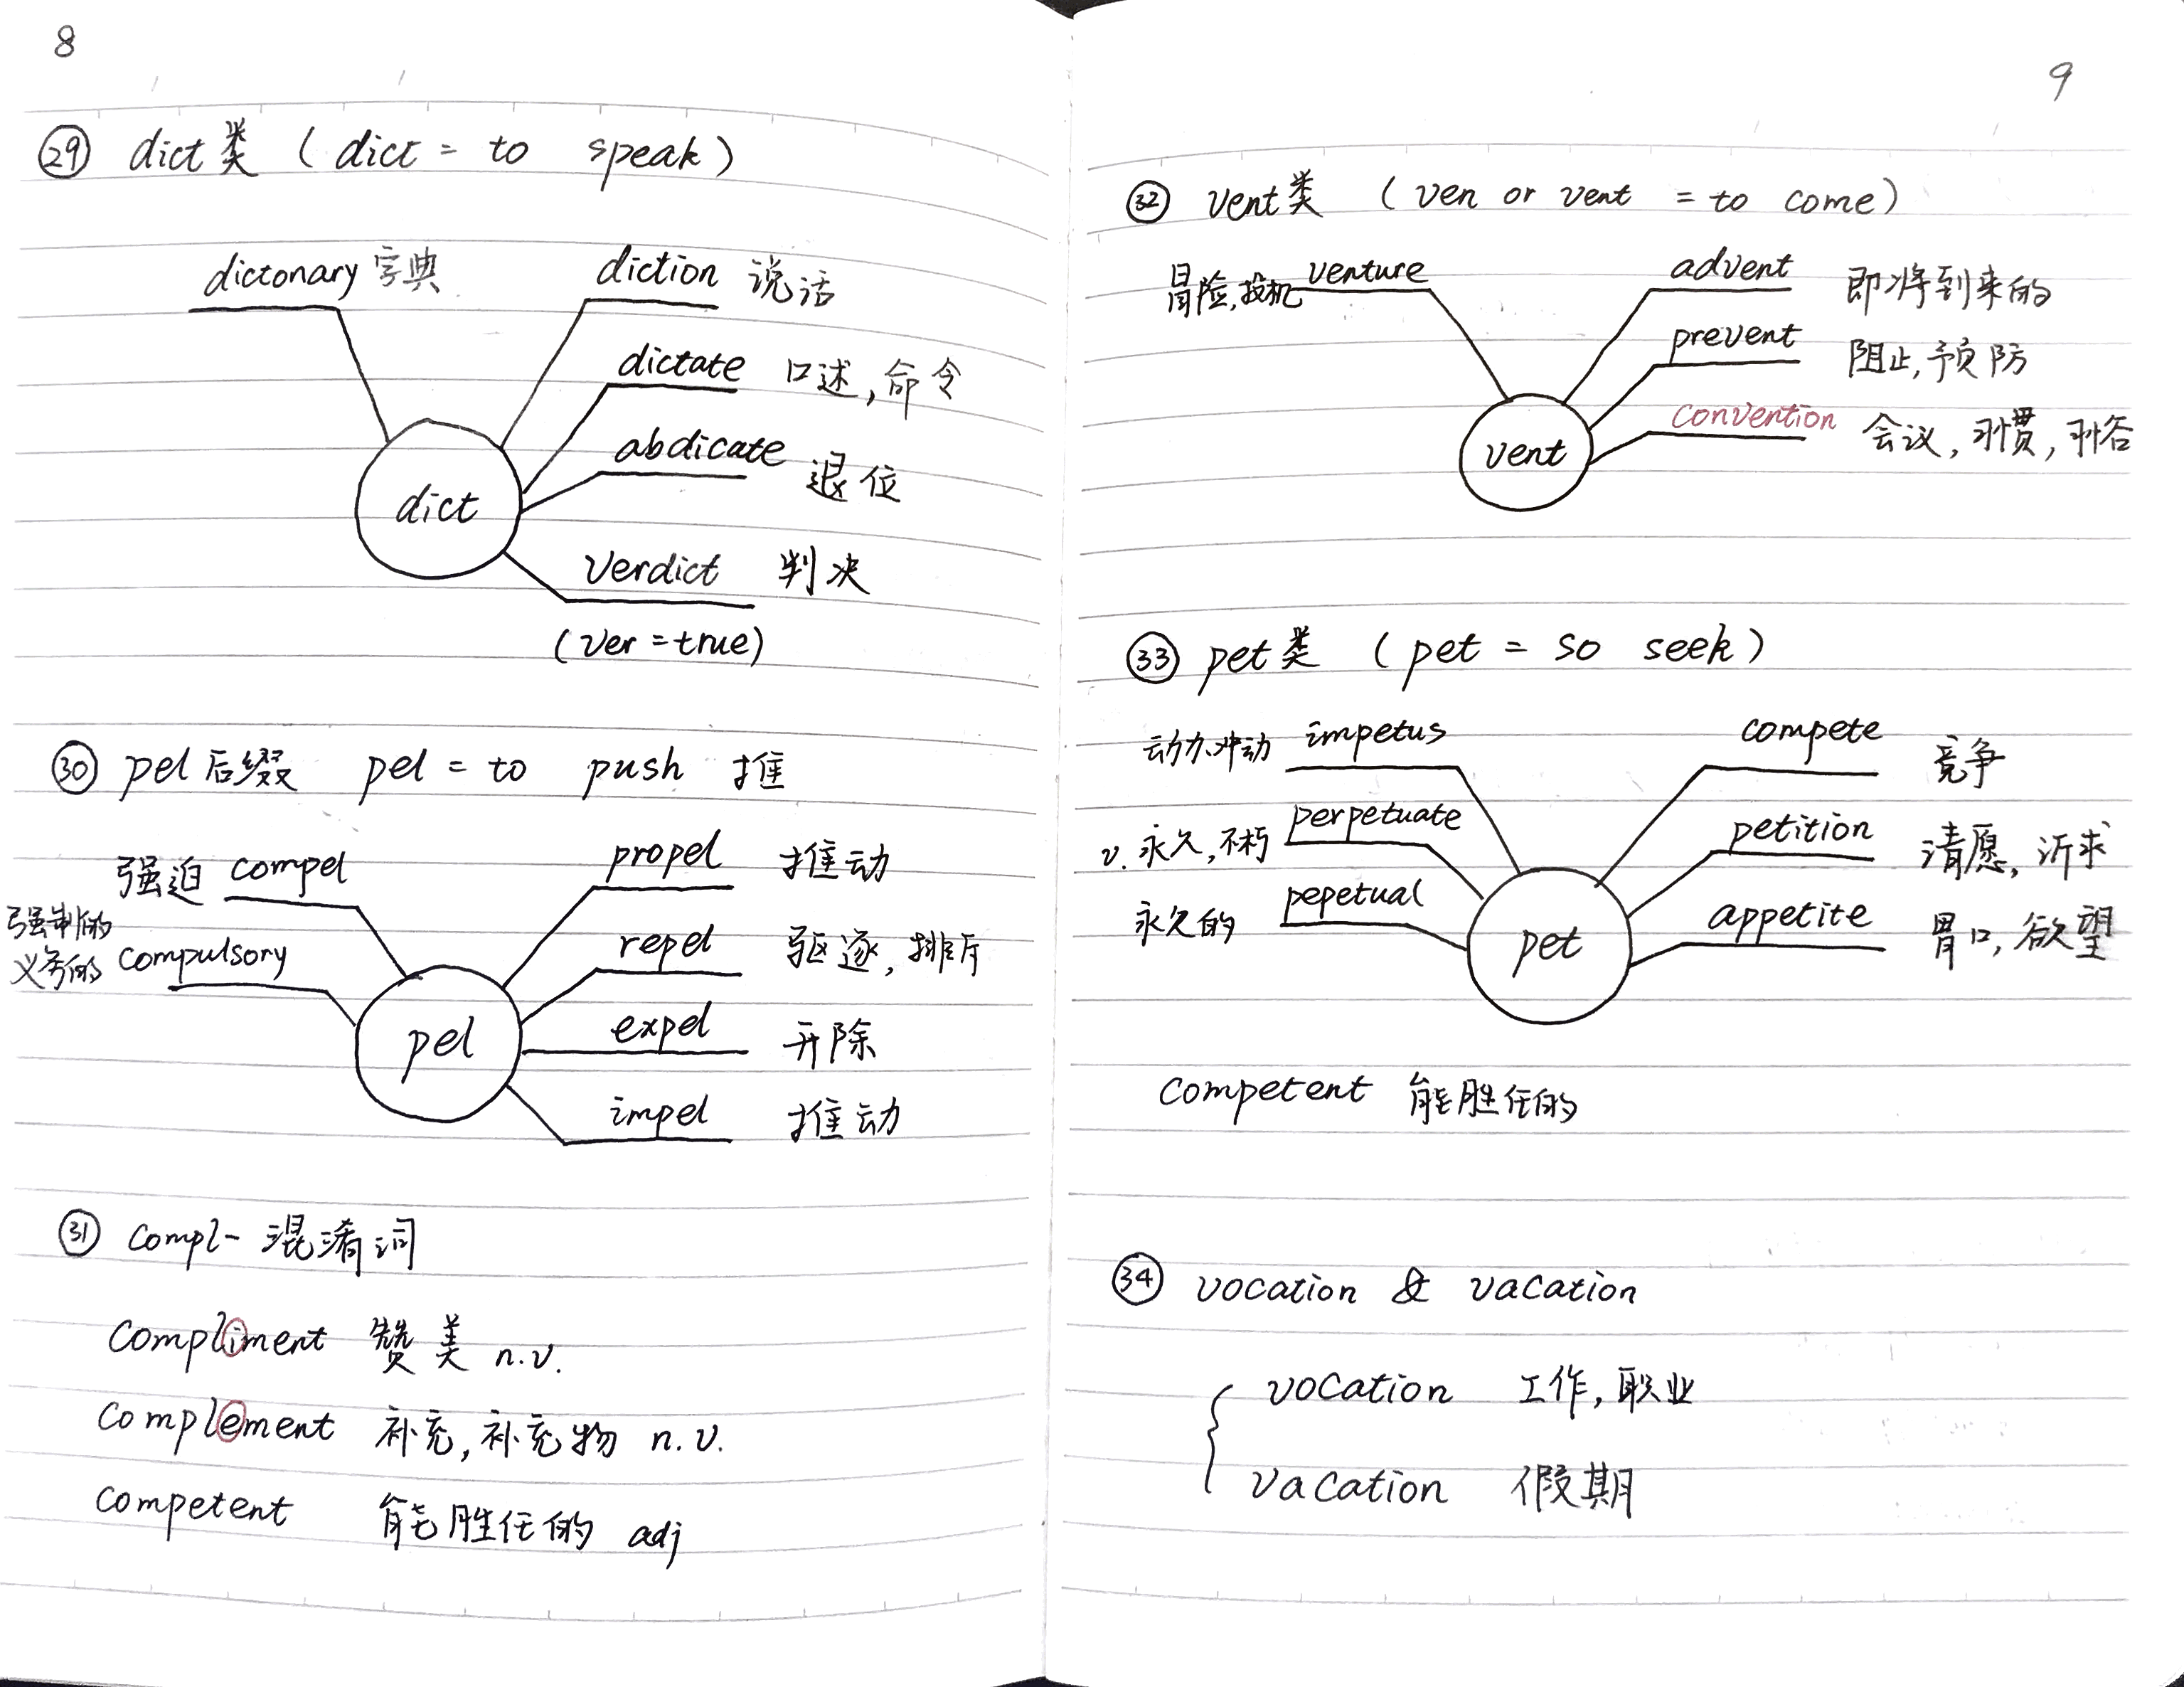 8
㉙ dict类 ( dict = to speak )
dictonary 字典
diction 说话
dictate 口述, 命令
abdicate 退位
dict
verdict 判决
(ver = true)
㉚ pel后缀 pel = to push 推
强迫 compel
强制的 义务的 compulsory
propel 推动
repel 驱逐, 排斥
pel
expel 开除
impel 推动
㉛ compl- 混淆词
compliment 赞美 n.v.
complement 补充, 补充物 n.v.
competent 能胜任的 adj
9
㉜ vent类 ( ven or vent = to come )
冒险, 投机 venture
advent 即将到来的
prevent 阻止, 预防
convention 会议, 习惯, 习俗
vent
㉝ pet类 ( pet = so seek )
动力、冲动 impetus
v. 永久, 不朽 perpetuate
永久的 pepetual
compete 竞争
petition 请愿, 诉求
appetite 胃口, 欲望
pet
competent 能胜任的
㉞ vocation & vacation
vocation 工作, 职业
vacation 假期